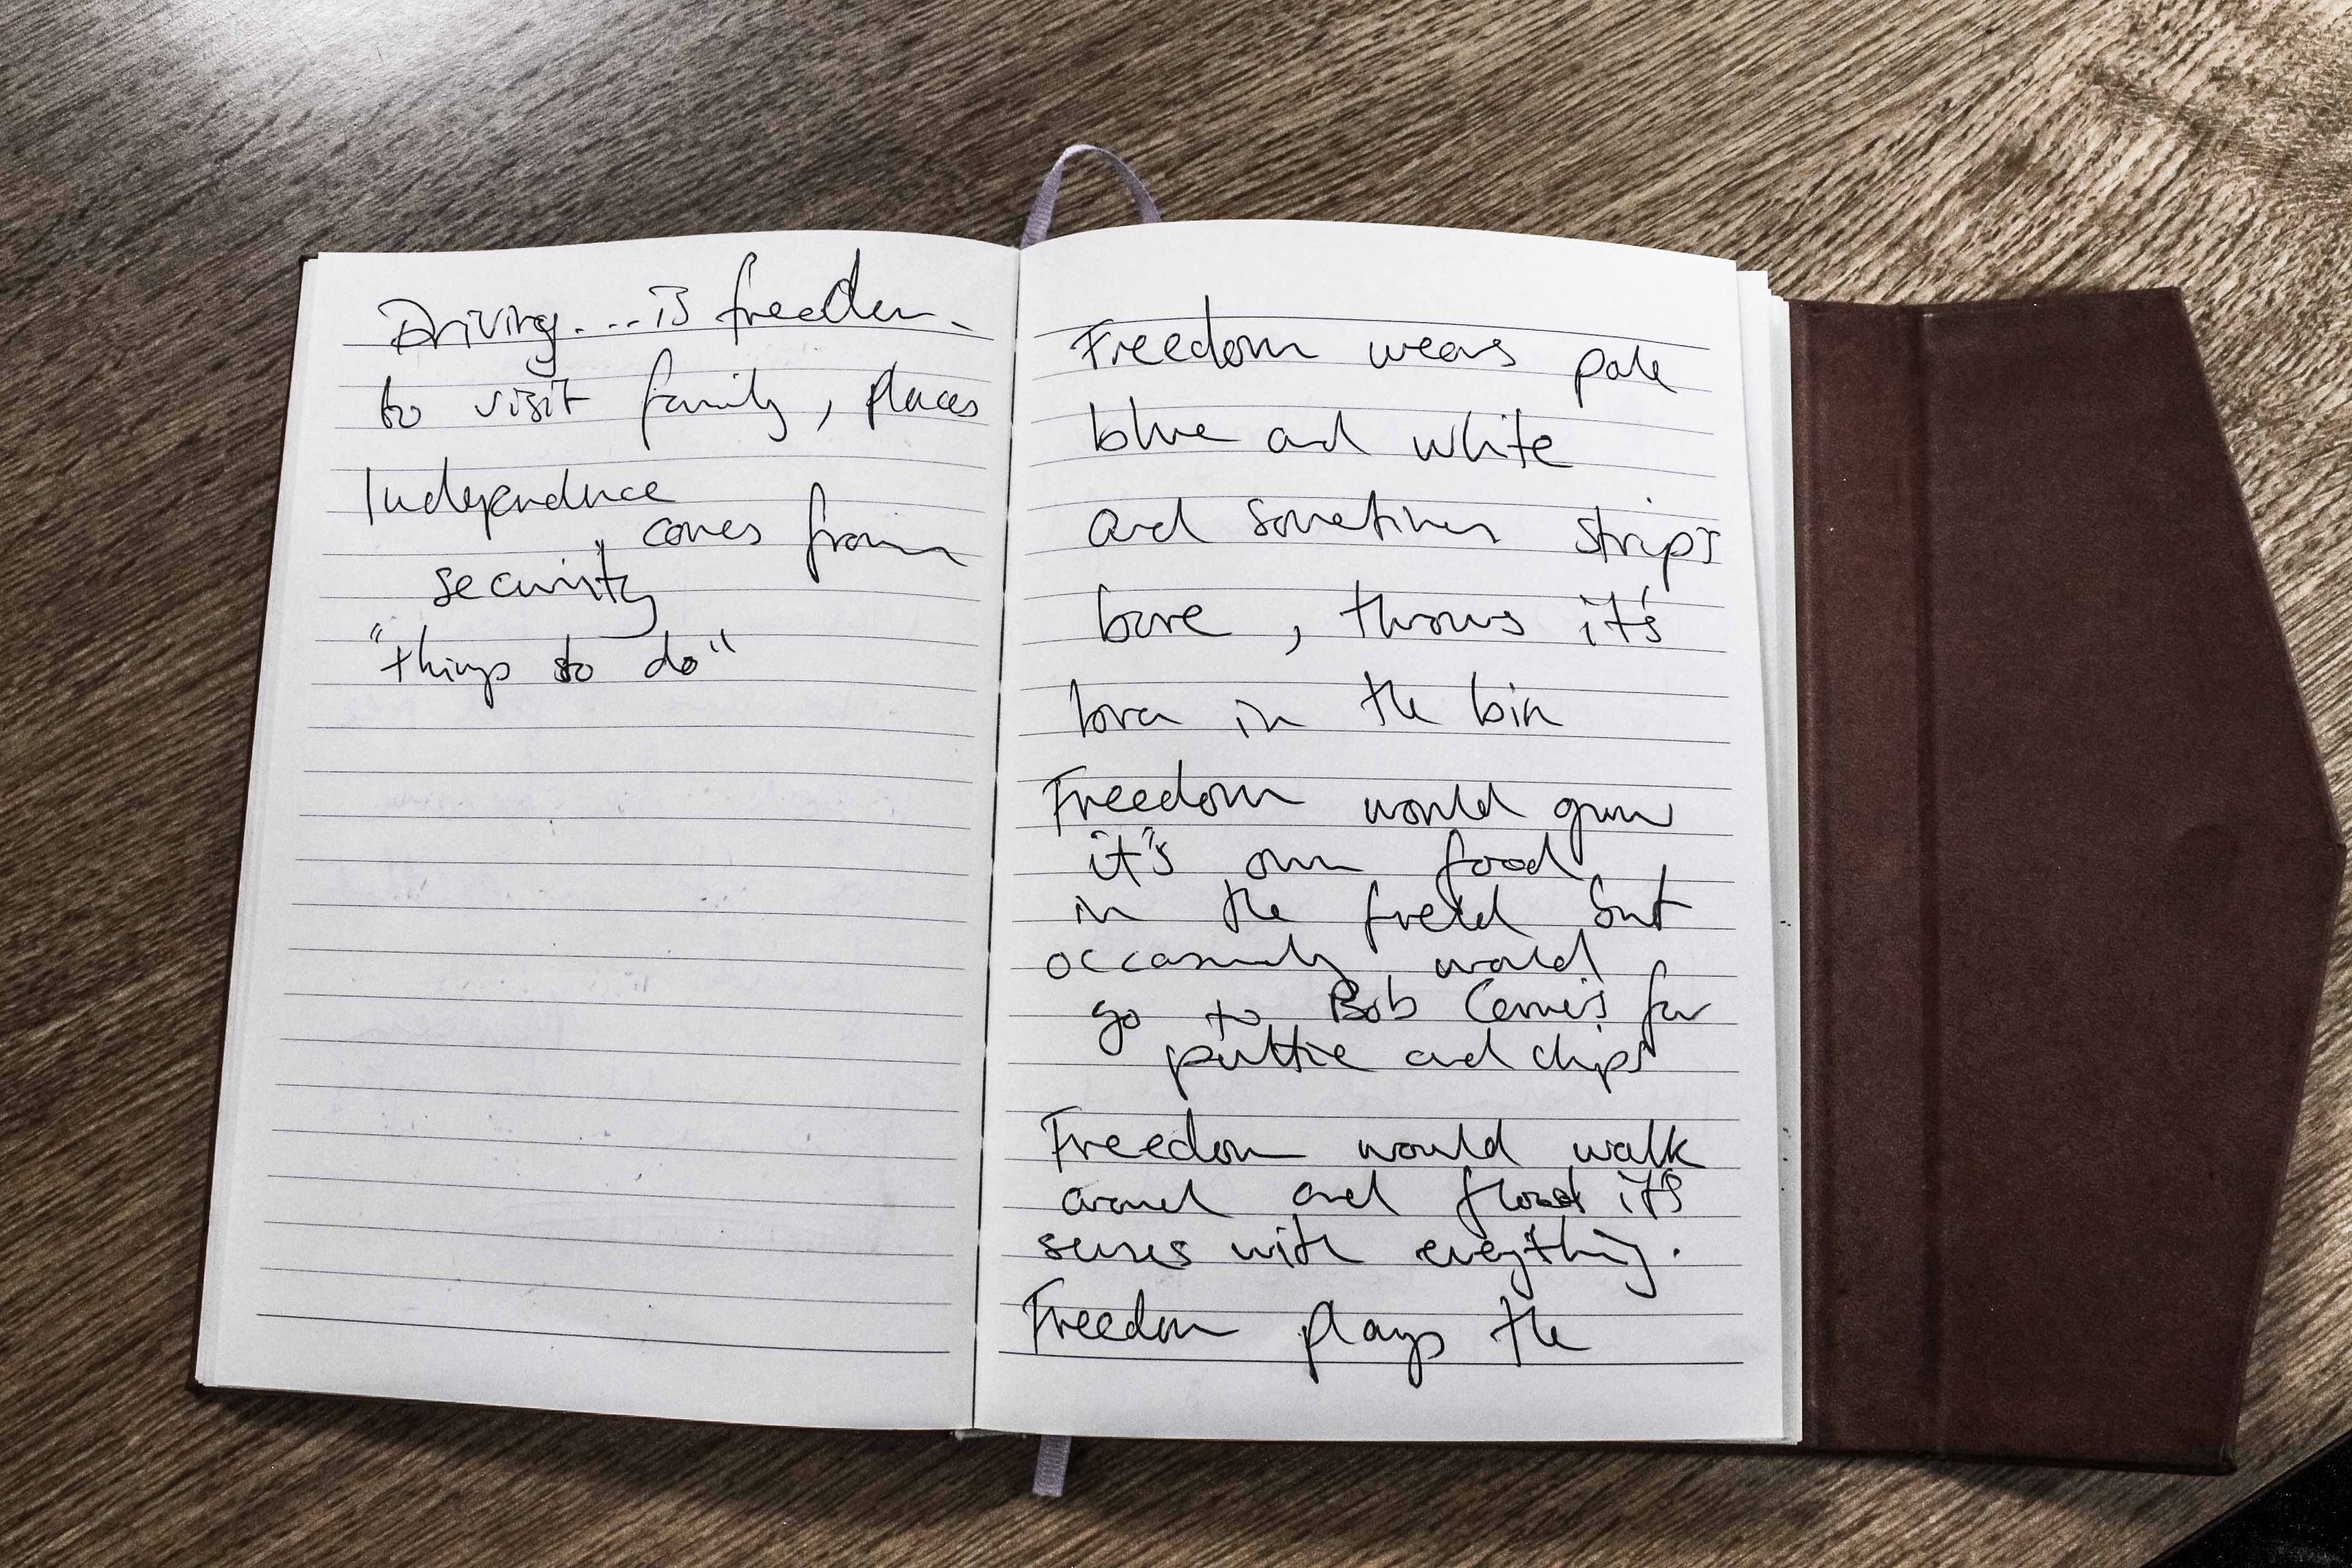 Driving....is freedom.
to visit family, places
Independence
comes from
security
"things to do"
Freedom wears pale
blue and white
and sometimes strips
bare, throws it's
bra in the bin
Freedom would grow
it's own food
in the field but
occasionally would
go to Bob for
pattie and chips
Freedom would walk
around and flood it's
senses with everything.
Freedom plays the